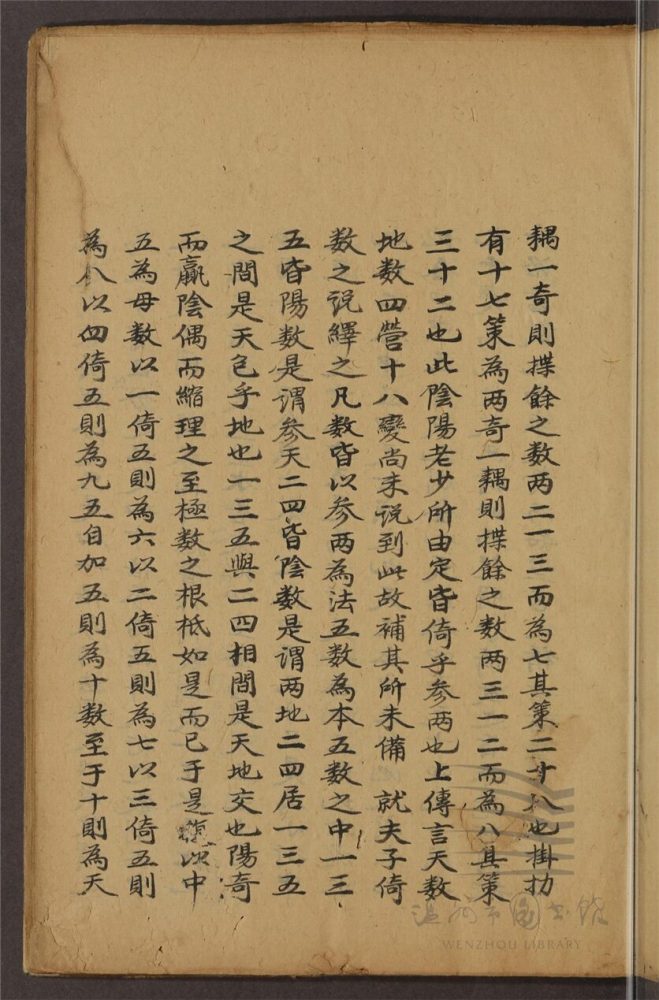 耦一奇則揲餘之數兩二一三而為七其策二十八也掛扐
有十七策為两奇一耦則揲餘之數两三一二而為八其策
三十二也此陰陽老少所由定皆倚乎参两也上傳言天數
地数四營十八變尚未说到此故補其所未備 就夫子倚
数之说繹之凡数皆以参两為法五数為本五数之中一三
五皆陽数是謂参天二四皆陰数是谓两地二四居一三五
之間是天包乎地也一三五與二四相間是天地交也陽奇
而贏陰偶而縮理之至極数之根柢如是而已于是以中
五為母数以一倚五則為六以二倚五則為七以三倚五則
為八以四倚五則為九五自加五則為十数至于十則為天
温州市图书馆
WENZHOU LIBRARY